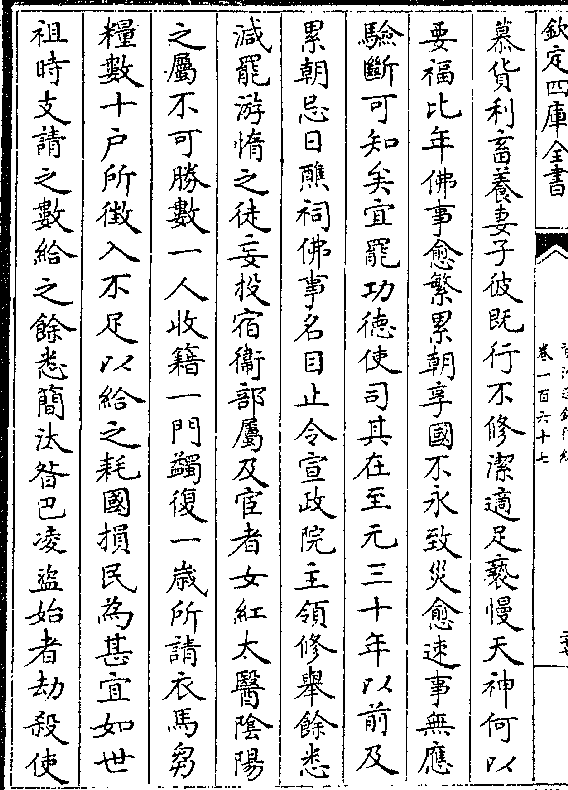 欽定四庫全書
卷一百六十七
慕貨利畜養妻子彼既行不修潔適足褻慢天神何以
要福比年佛事愈繁累朝享國不永致災愈速事無應
驗斷可知矣宜罷功德使司其在至元三十年以前及
累朝忌日醮祠佛事名目止令宣政院主領修舉餘悉
減罷游惰之徒妄投宿衞部屬及宦者女紅太醫陰陽
之屬不可勝數一人收籍一門蠲復一歲所請衣馬芻
糧數十户所徵入不足以給之耗國損民為甚宜如世
祖時支請之數給之餘悉簡汰㫺巴凌盜始者劫殺使